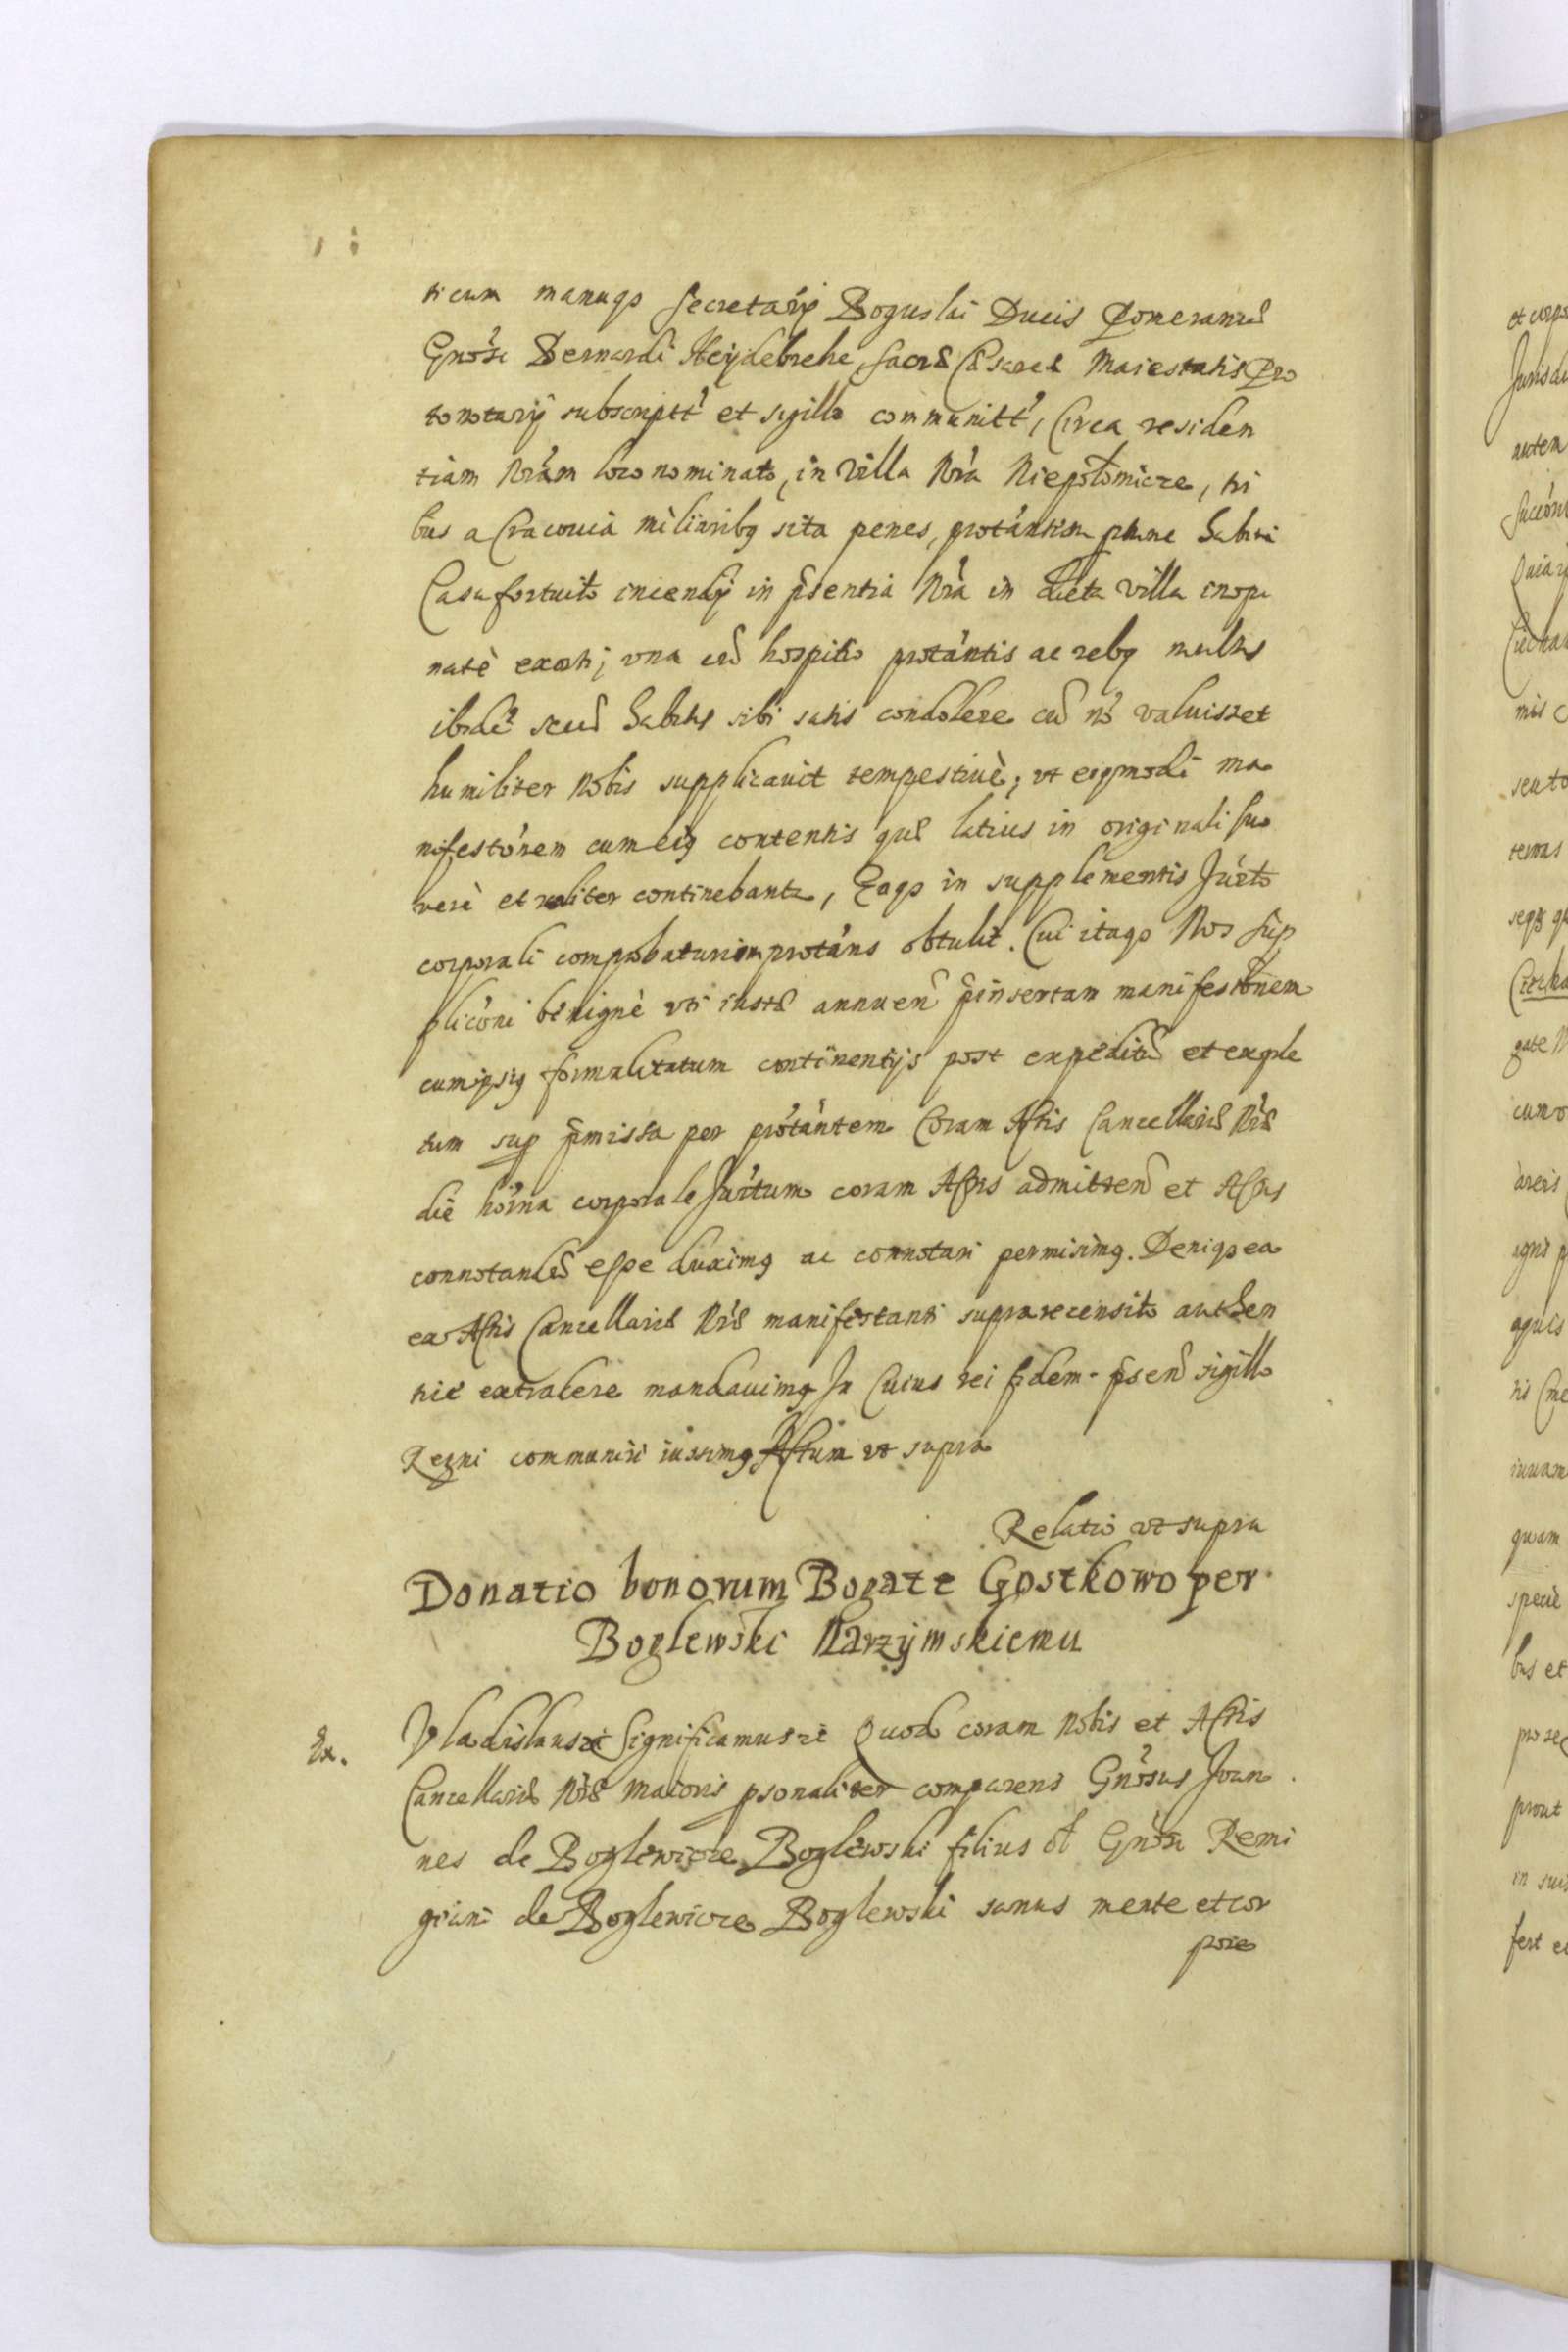 ticum manuqs Secretarij Boguslai Ducis Pomeraniæ
Gnósi Bernardi Heydebreke, Sacræ Cæsareæ Maiestatis Pro
tonotarij subscriptt' et sigillo communitt', Circa residen
tiam Nrám loco nominato, in Villa Nrá Niepołomicze, tri
bus a Cracouia miliaribq sita penes, protántem plane habiti
Casu fortuito incendij in p̃sentia Nrá in dicta villa inopi
natè exorti, vna cũ hospitio protántis ac rebq multis
ibidẽ secũ habitis sibi satis condolere cũ nó valuisset
humiliter Nobis supplicauit tempestiuè, vt eiqmodi ma
nifestónem cum eiq contentis quæ latius in originali suo
verè et realiter continebantr, Eaqs in supplementis Juŕto
corporali comprobaturum protáns obtulit. Cui itaqs Nos Sup
plicóni benignè vti iustæ annuen̄ p̃insertam manifestónem
cum ipsiq formalitatum continentijs post expeditũ et exple
tum sup p̃missa per protántem Coram Actis Cancellariæ Nræ
die hórna corporale Juŕtum coram Actis admitten̄ et Actis
connotandũ esse duximq ac connotari permisimq. Deniqs ea
ex Actis Cancellariæ Nræ manifestanti suprarecensito authen
ticè extradere mandauimq In Cuius rei fidem p̃sen̄ sigillo
Regni communiri iussimq Actum vt supra
Relatio vt supra
Donatio bonorum Bogate Gostkowo per
Boglewski Narzymskiemu
Ex. Vladislaus etc Significamus etc Quod coram Nobis et Actis
Cancellariæ Nræ Maioris psonaliter comparens Gnósus Joan
nes de Boglewicze Boglewski filius ol Gnósi Remi
giani de Boglewicze Boglewski sanus mente et cor
pore